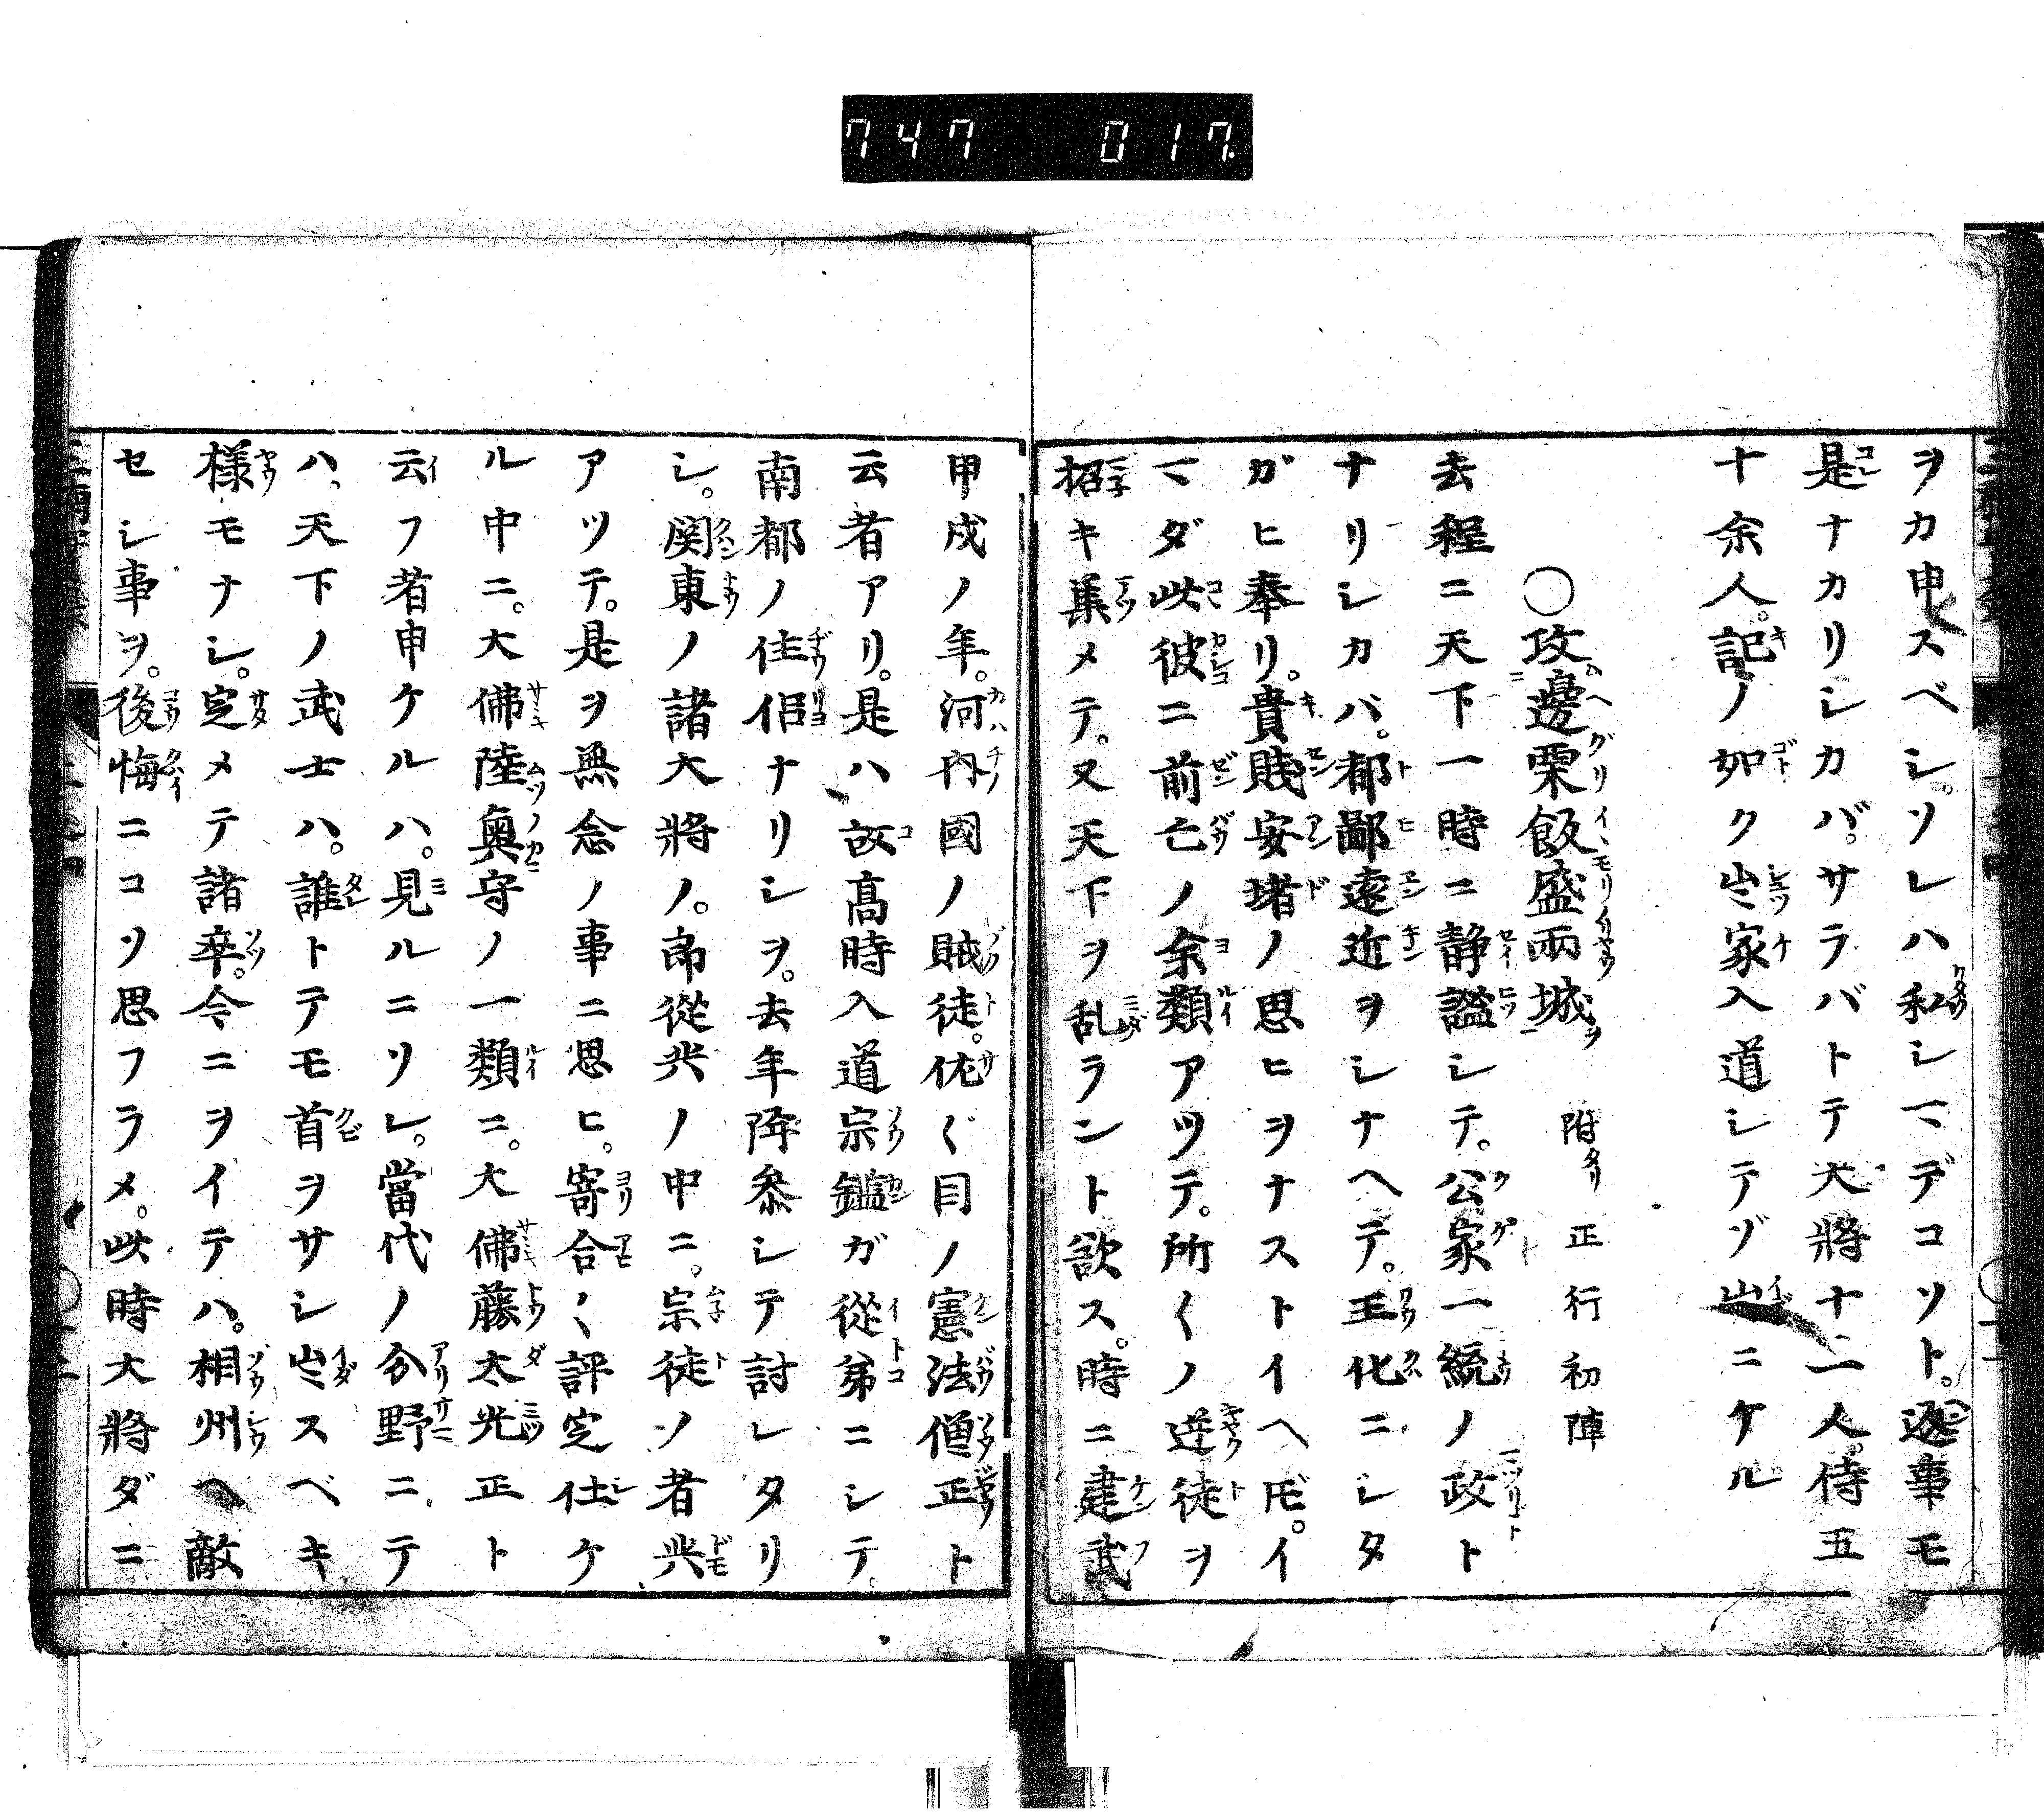 747 017
ヲカ申スベシ。ソレハ私シマデコソト。返事モ
是ナカリシカバ。サラバトテ大將十二人。侍五
十余人。記ノ如ク出家入道シテゾ出ニケル
〇攻邊栗飯盛兩城 附タリ 正行初陣
去程ニ天下一時ニ静謐シテ。公家一統ノ政ト
ナリシカバ。都鄙遠近ヲシナヘテ。王化ニシタ
ガヒ奉リ。貴賎安堵ノ思ヒヲナストイヘ𪜈。イ
マダ此彼ニ前亡ノ余類アツテ。所〱ノ逆徒ヲ
招キ集メテ。又天下ヲ乱ラント欲ス。時ニ建武
甲戌ノ年。河内國ノ賊徒。佐〲目ノ憲法僧正ト
云者アリ。是ハ故高時入道宗鑑ガ從弟ニシテ。
南都ノ住侶ナリシヲ。去年降参シテ討レタリ
シ。関東ノ諸大將ノ。郎從共ノ中ニ。宗徒ソ者共
アツテ。是ヲ無念ノ事ニ思ヒ。寄合〱評定仕ケ
ル中ニ。大佛陸奥守ノ一類ニ。大佛藤太光正ト
云フ者申ケルハ。見ルニソレ。當代ノ分野ニテ
ハ、天下ノ武士ハ。誰トテモ首ヲサシ出スベキ
様モナシ。定メテ諸卒。今ニヲイテハ。相州ヘ敵
セシ事ヲ。後悔ニコソ思フラメ。此時大將ダニ